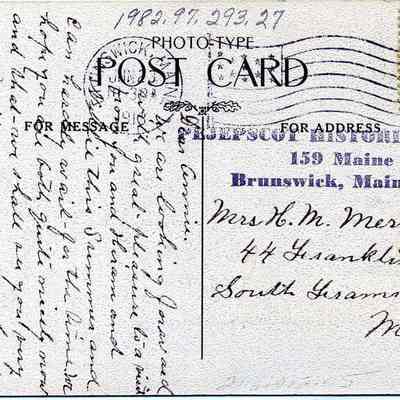 1982.97.293.27
PHOTO-TYPE
POST CARD
FOR MESSAGE
FOR ADDRESS
PEJEPSCOT HISTORI
159 Maine
Brunswick, Main
Mrs H. M. Mer
44 Franklin
South Framin
M
Dear Annie:
We are looking forward
with great pleasure to a visit
from you and Hiram and
this Summer and
can hardly wait for the time. We
hope you are both quite nicely now
and that we shall see you very